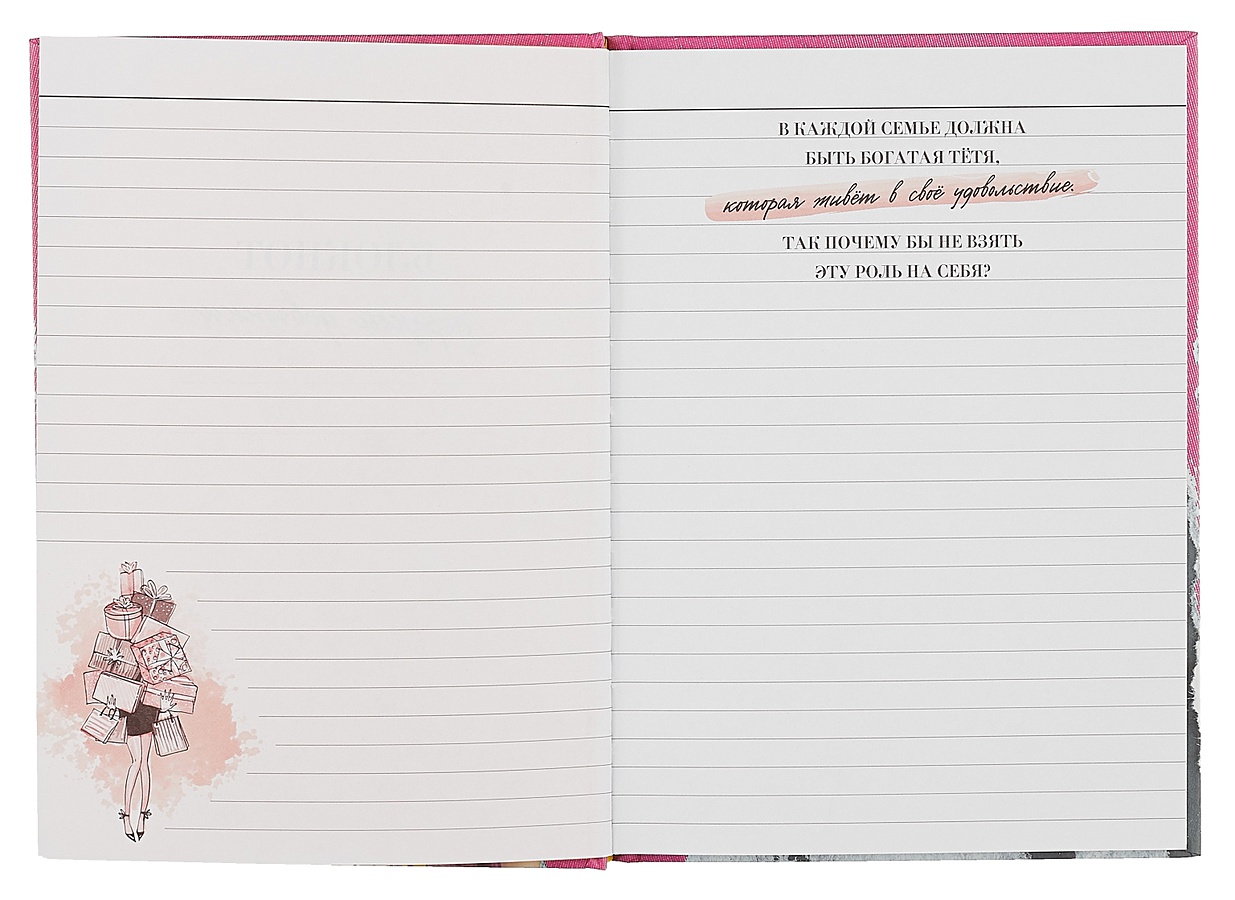 В КАЖДОЙ СЕМЬЕ ДОЛЖНА
БЫТЬ БОГАТАЯ ТЁТЯ,
которая живёт в своё удовольствие.
ТАК ПОЧЕМУ БЫ НЕ ВЗЯТЬ
ЭТУ РОЛЬ НА СЕБЯ?